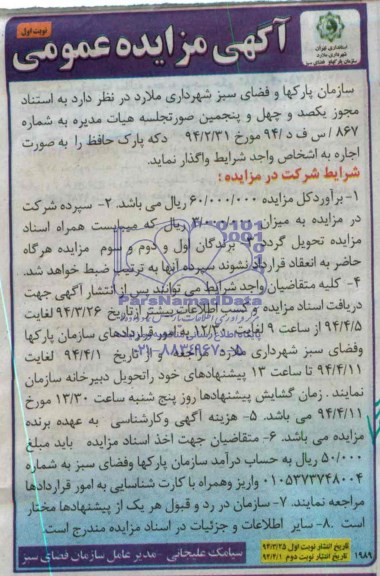 نوبت اول
آگهی مزایده عمومی
استانداری تهران
شهرداری ملارد
سازمان پارکها و فضای سبز
سازمان پارکها و فضای سبز شهرداری ملارد در نظر دارد به استناد
مجوز یکصد و چهل و پنجمین صورتجلسه هیات مدیره به شماره
۸۶۷ / س ف د /۹۴ مورخ ۹۴/۲/۳۱ دکه پارک حافظ را به صورت
اجاره به اشخاص واجد شرایط واگذار نماید.
شرایط شرکت در مزایده :
۱- برآوردکل مزایده ۶۰/۰۰۰/۰۰۰ ریال می باشد. ۲- سپرده شرکت
در مزایده به میزان ۳/۰۰۰/۰۰۰ ریال که میبایست همراه اسناد
مزایده تحویل گردد. ۳- برندگان اول و دوم و سوم مزایده هرگاه
حاضر به انعقاد قرارداد نشوند سپرده آنها به ترتیب ضبط خواهد شد.
۴- کلیه متقاضیان واجد شرایط می توانند پس از انتشار آگهی جهت
دریافت اسناد مزایده و کسب اطلاعات بیشتر از تاریخ ۹۴/۳/۲۶ لغایت
۹۴/۴/۵ از ساعت ۹ لغایت ۱۲/۳۰ به امور قراردادهای سازمان پارکها
وفضای سبز شهرداری ملارد مراجعه و از تاریخ ۹۴/۴/۱ لغایت
۹۴/۴/۱۱ تا ساعت ۱۳ پیشنهادهای خود راتحویل دبیرخانه سازمان
نمایند . زمان گشایش پیشنهادها روز پنج شنبه ساعت ۱۳/۳۰ مورخ
۹۴/۴/۱۱ می باشد. ۵- هزینه آگهی وکارشناسی به عهده برنده
مزایده می باشد. ۶- متقاضیان جهت اخذ اسناد مزایده باید مبلغ
۵۰/۰۰۰ ریال به حساب درآمد سازمان پارکها وفضای سبز به شماره
۰۱۰۵۳۷۳۷۴۸۰۰۴ واریز وهمراه با کارت شناسایی به امور قراردادها
مراجعه نمایند. ۷- سازمان در رد و قبول هر یک از پیشنهادها مختار
است .۸- سایر اطلاعات و جزئیات در اسناد مزایده مندرج است.
تاریخ انتشار نوبت اول ۹۴/۳/۲۵
تاریخ انتشار نوبت دوم ۹۴/۴/۱
سیامک علیخانی - مدیر عامل سازمان فضای سبز
۱۹۸۹
ParsNamadData
۰۲۱-۸۸۳۴۹۶۷۰